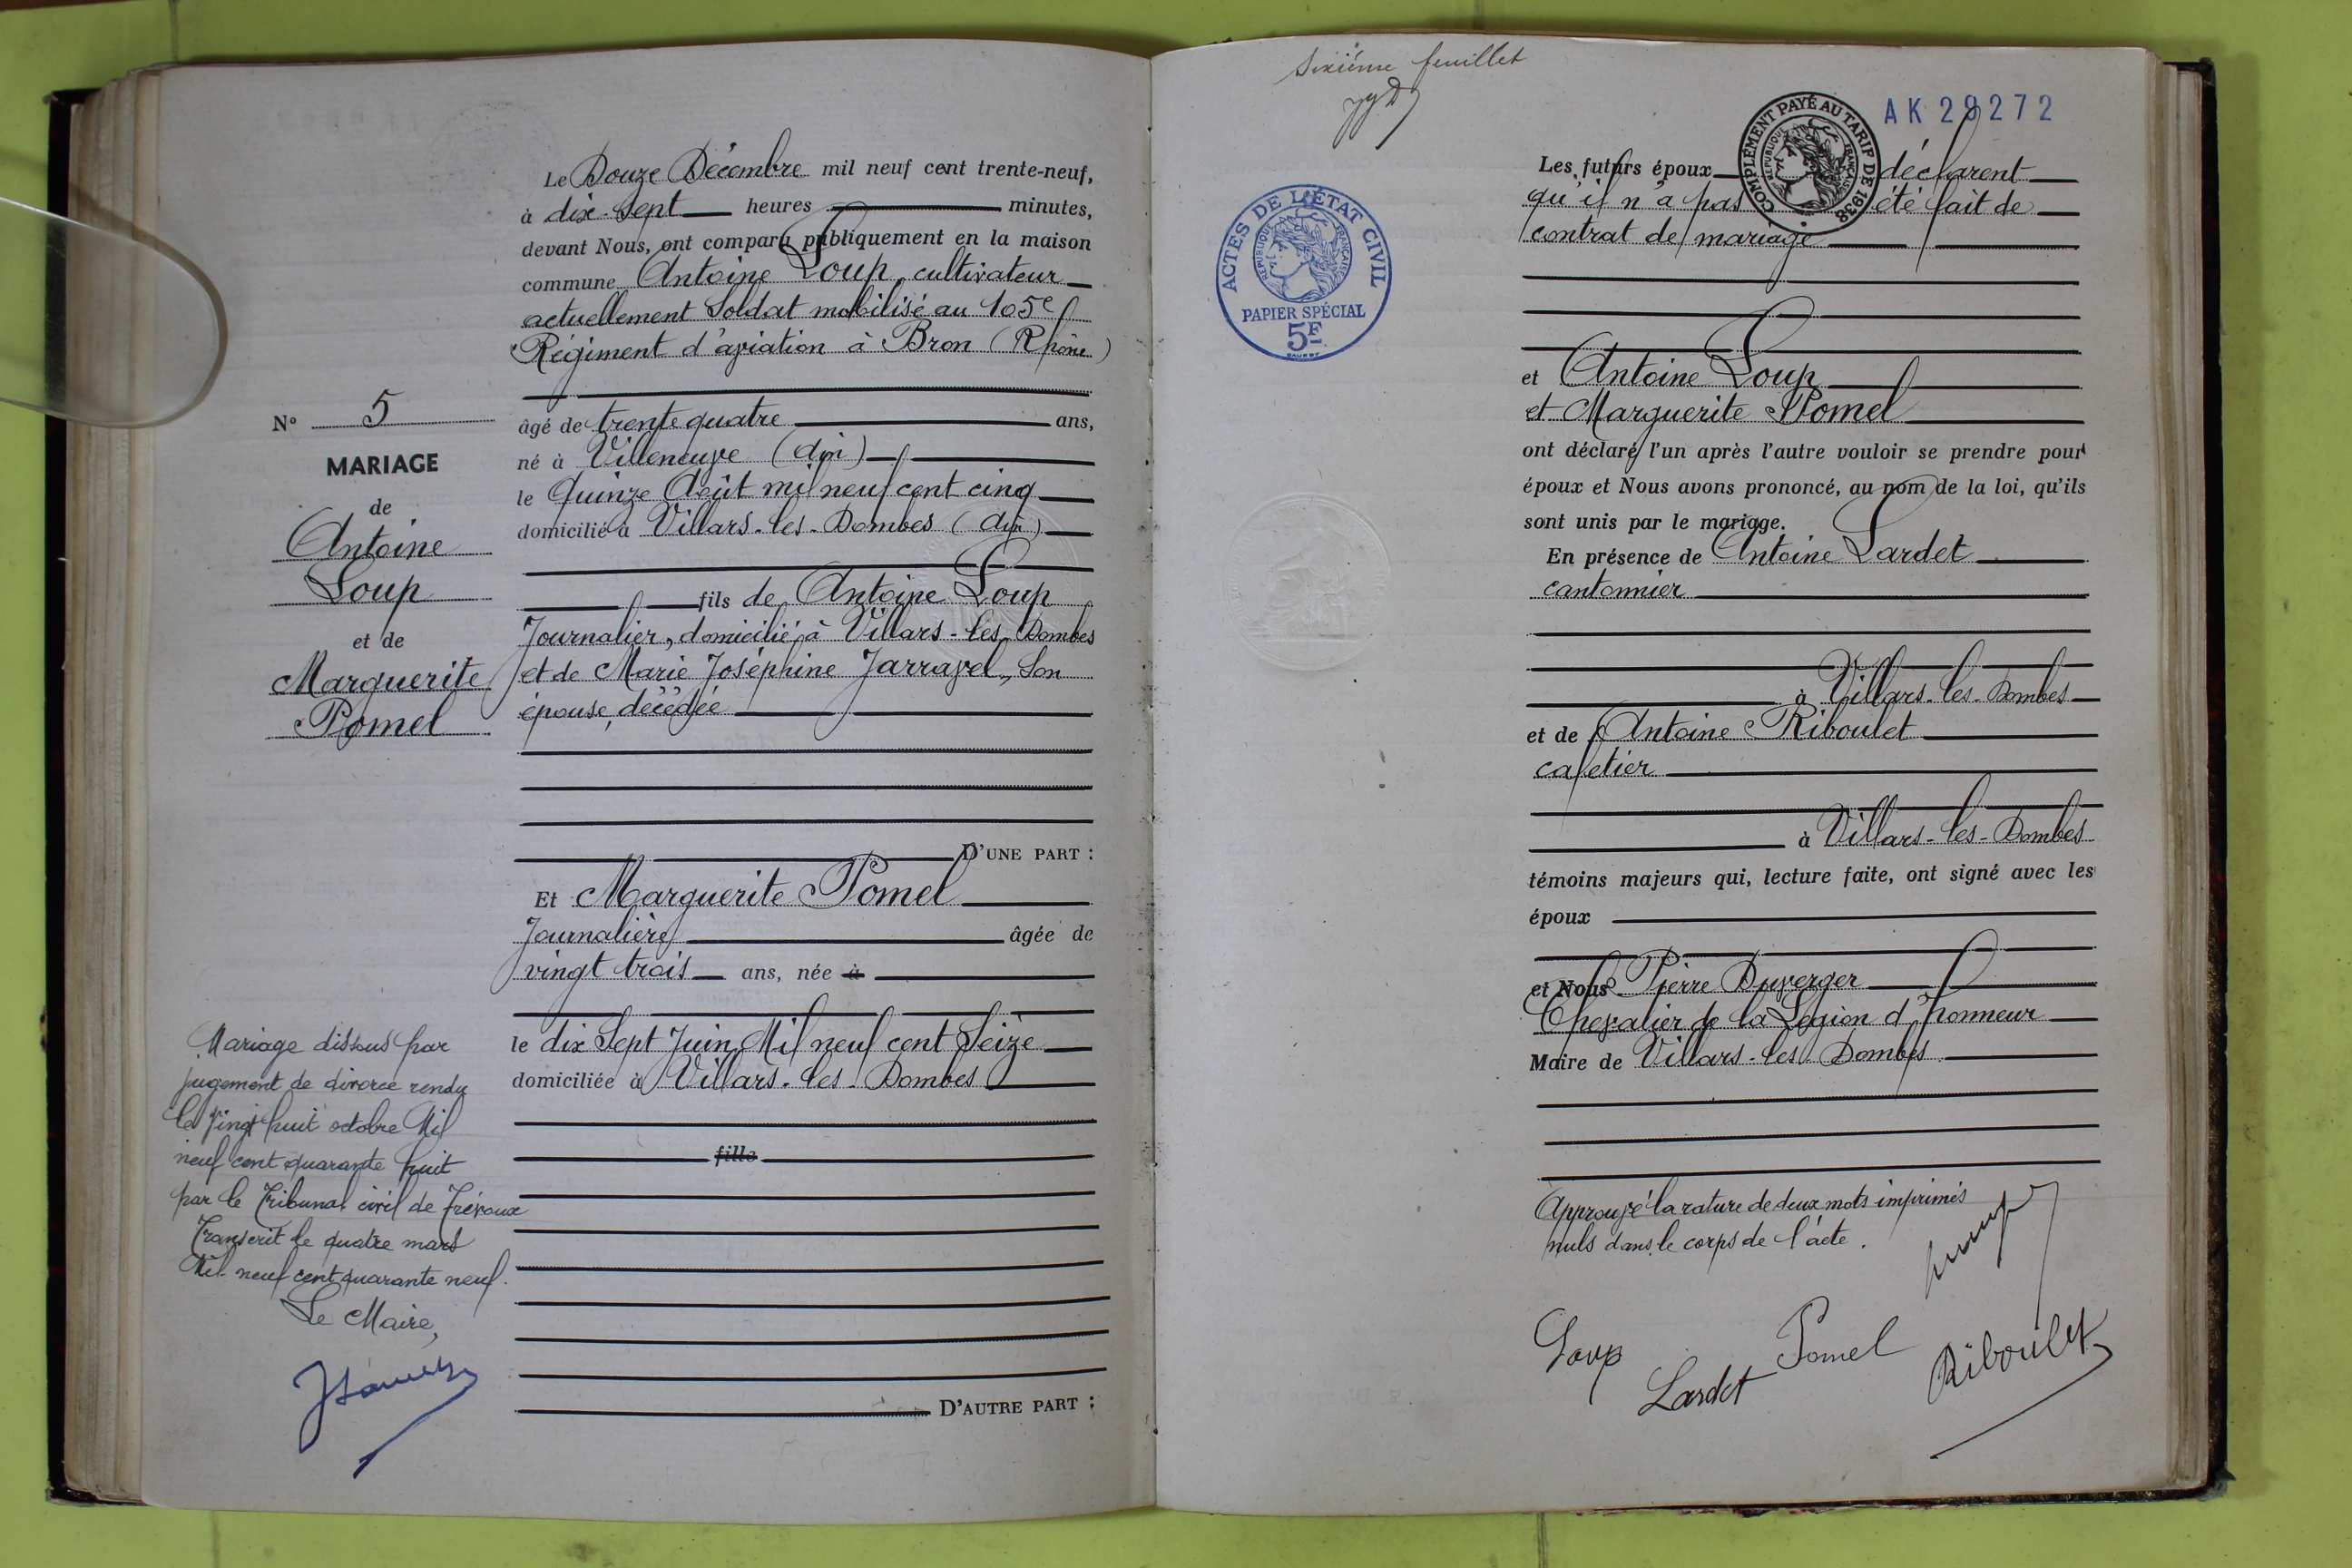 Le Douze Décembre mil neuf cent trente-neuf,
à dix-sept heures minutes,
devant Nous, ont comparu publiquement en la maison
commune Antoine Loup, cultivateur
actuellement Soldat mobilisé au 105e
Régiment d'aviation à Bron (Rhône)
âgé de trente quatre ans,
né à Villeneuve (Ain)
le Quinze Août mil neuf cent cinq
domicilié à Villars-les-Dombes (Ain)
fils de Antoine Loup
Journalier, domicilié à Villars-les-Dombes
et de Marie Joséphine Jarravel, Son
épouse, décédée
D'UNE PART :
Et Marguerite Pomel
Journalière âgée de
vingt trois ans, née à
le dix Sept Juin Mil neuf cent Seize
domiciliée à Villars-les-Dombes
fille
D'AUTRE PART :
N° 5
MARIAGE
de
Antoine
Loup
et de
Marguerite
Pomel
Mariage dissous par
jugement de divorce rendu
le vingt huit octobre Mil
neuf cent quarante huit
par le Tribunal civil de Trévoux
Transcrit le quatre mars
Mil neuf cent quarante neuf.
Le Maire,
Sixième feuillet
ACTES DE L'ÉTAT CIVIL
RÉPUBLIQUE FRANÇAISE
PAPIER SPÉCIAL
5F
COMPLÉMENT PAYÉ AU TARIF DE 1938
RÉPUBLIQUE FRANÇAISE
AK 29272
Les futurs époux déclarent
qu'il n'a pas été fait de
contrat de mariage
et Antoine Loup
et Marguerite Pomel
ont déclaré l'un après l'autre vouloir se prendre pour
époux et Nous avons prononcé, au nom de la loi, qu'ils
sont unis par le mariage.
En présence de Antoine Lardet
cantonnier
à Villars-les-Dombes
et de Antoine Riboulet
cafetier
à Villars-les-Dombes
témoins majeurs qui, lecture faite, ont signé avec les
époux
et Nous Pierre Duverger
Chevalier de la Légion d'honneur
Maire de Villars-les-Dombes
Approuvé la rature de deux mots imprimés
nuls dans le corps de l'acte.
Loup
Pomel
Lardet
Riboulet